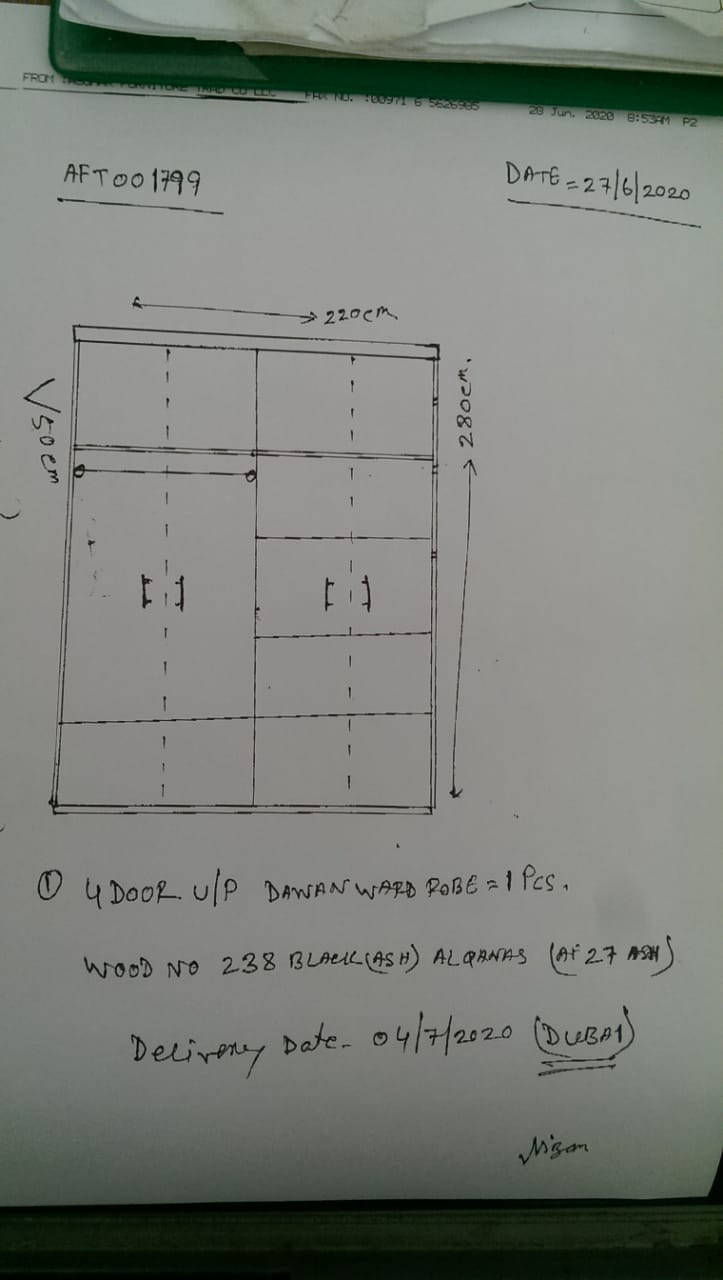 FROM : FURNITURE TRAD CO LLC FAX NO. :00971 6 5626985 28 Jun. 2020 8:53AM P2
AFT001799
DATE = 27/6/2020
220cm
280cm.
50cm
① 4 DOOR U/P DAWAN WARD ROBE = 1 Pcs.
WOOD NO 238 BLACK (ASH) ALQANAS (AF 27 ASH)
Delivery Date - 04/7/2020 (DUBAI)
Nizam